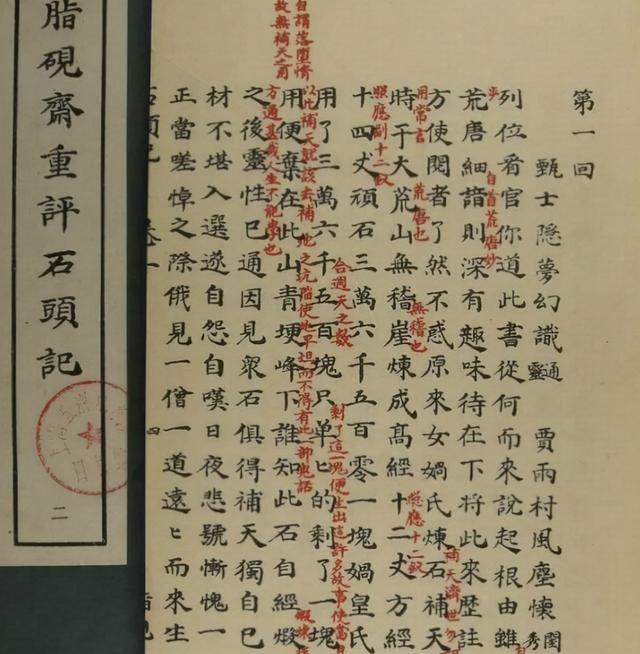 第一回
甄士隱夢幻識通靈 賈雨村風塵懷閨秀
列位看官你道此書從何而來說起根由雖
自首荒唐妙
荒唐細諳則深有趣味待在下將此來歷註
方使閱者了然不惑原來女媧氏煉石補天
補天濟世勿
用常言
荒唐也
無稽也
時于大荒山無稽崖煉成高經十二丈方經
照應十二釵
照應副十二釵
十四丈頑石三萬六千五百零一塊媧皇氏
合週天之數
剩了這一塊便生出這許多故事使當日
用了三萬六千五百塊只單ヒ的剩了一塊
以此補天就該去補地之坑陷使地平坦而不得有此一部鬼話
用便棄在此山青埂峰下誰知此石自經煅
自謂落墮情
故無補天之用
煅煉
方通甚哉人生不能學也
之後靈性已通因見衆石俱得補天獨自己
材不堪入選遂自怨自嘆日夜悲號慚愧一
正當嗟悼之際俄見一僧一道遠ヒ而來生
石頭記 卷一
四
脂硯
脂硯齋重評石頭記
二